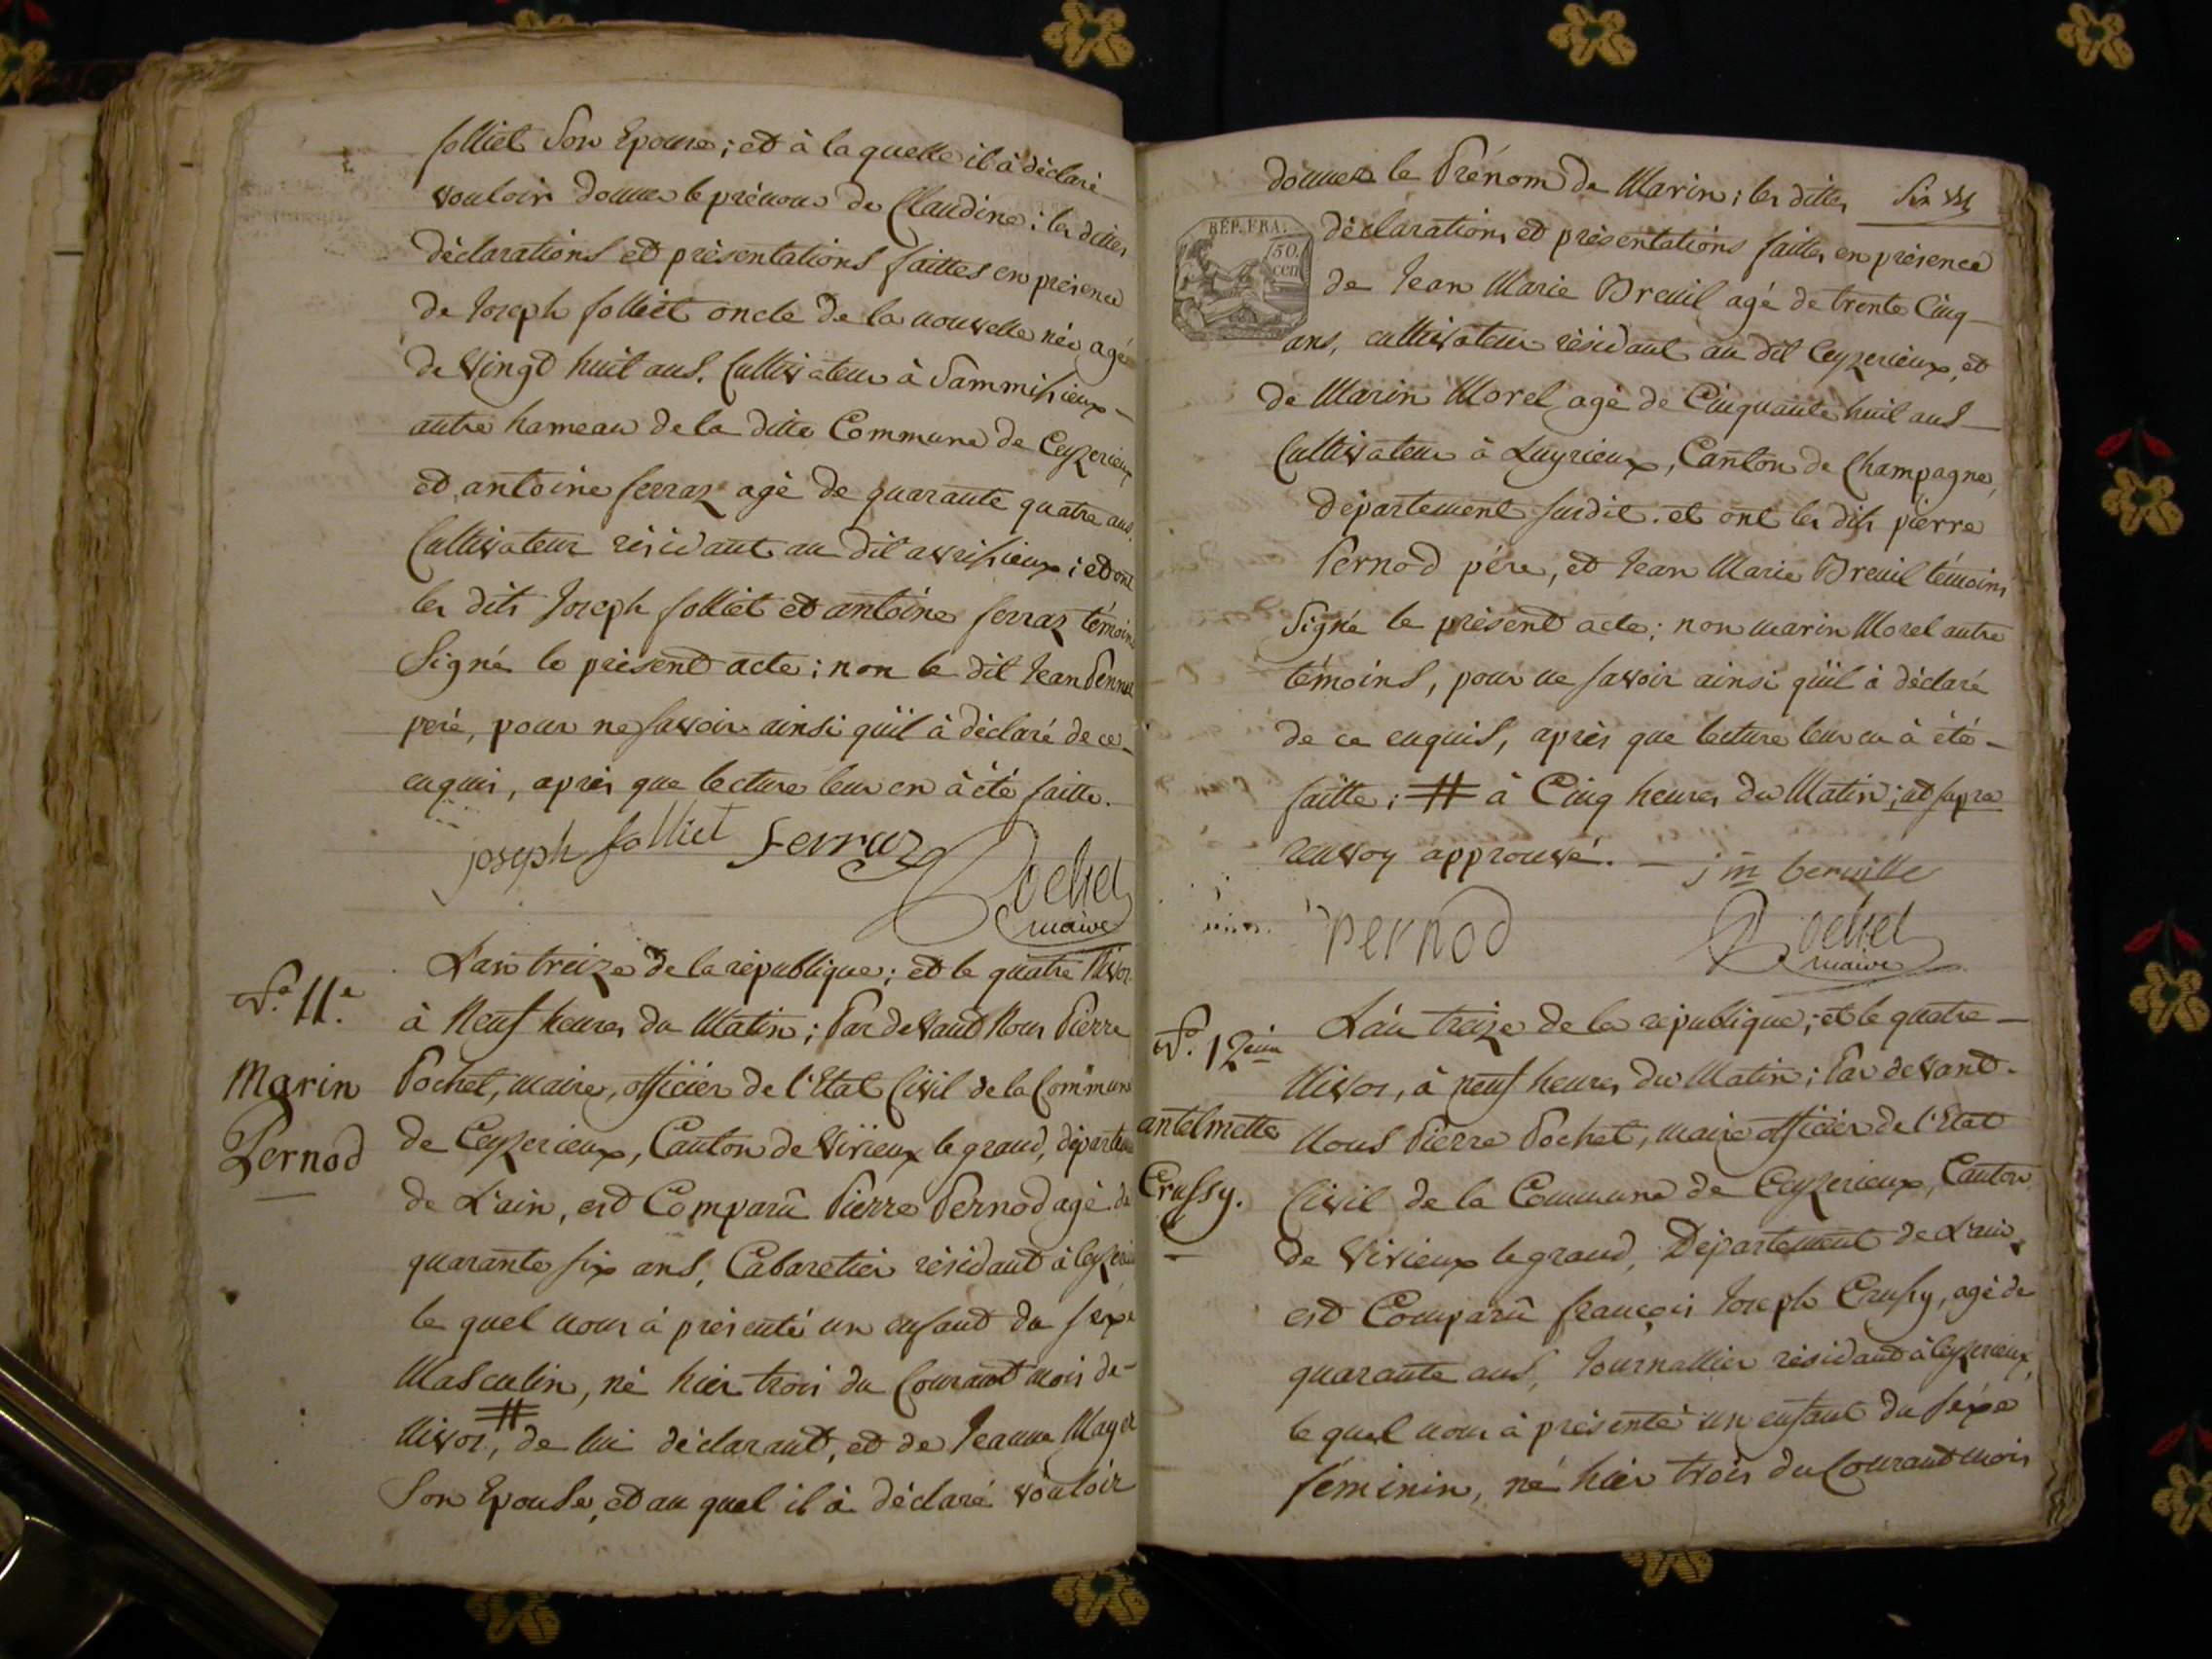 folliet son Epouse ; et à la quelle il à déclaré
vouloir donner le prénom de Claudine ; les dittes
déclarations et présentations faittes en présence
de Joseph folliet oncle de la nouvelle née agé
de vingt huit ans. Cultivateur à Sammissieux –
autre hameau de la ditte Commune de Ceyzerieux
et antoine ferraz agé de quarante quatre ans,
Cultivateur résidant au dit avrissieux ; et ont
les dits Joseph folliet et antoine ferraz témoins
Signé le présent acte ; non le dit Jean
peré, pour ne savoir ainsi qu'il à déclaré de ce
enquis, après que lecture leur en à été faitte.
joseph folliet ferraz
Pochet
maire
N.º 11.e
Marin
Pernod
L'an treize de la république ; et le quatre Nivos
à Neuf heures du Matin ; Par devant Nous Pierre
Pochet, maire, officier de l'Etat Civil de la Commune
de Ceyzerieux, Canton de Virieux le grand, départem
de L'ain, est Comparû Pierre Pernod agé de
quarante six ans, Cabaretier résidant à Ceyzerieux
le quel nous à présenté un enfant du sexe
Masculin, né hier trois du Courant mois de –
#
Nivos, de lui déclarant, et de Jeanne Mayet
Son Epouse, et au quel il à déclaré vouloir
donner le Prénom de Marin ; les dittes
REP. FRA.
50.
cen
déclarations et présentations faittes en présence
de Jean Marie Breuil agé de trente Cinq –
ans, cultivateur résidant au dit Ceyzerieux, et
de Marin Morel agé de Cinquante huit ans –
Cultivateur à Luyrieux, Canton de Champagne,
département susdit. et ont les dits pierre
Pernod pére, et Jean Marie Breuil témoins
Signé le présent acte ; non marin Morel autre
témoins, pour ne savoir ainsi qu'il à déclaré
de ce enquis, après que lecture leur en à été –
faitte ; # à Cinq heures du Matin ; ut supra
renvoy approuvé. – j m
pernod
Pochet
maire
N.º 12.ème
antelmette
Crussy.
L'an treize de la république ; et le quatre –
Nivos, à neuf heures du Matin ; Par devant
Nous Pierre Pochet, maire officier de l'Etat
Civil de la Commune de Ceyzerieux, Canton
de Virieux le grand, Département de L'ain,
est Comparû françois Joseph Crussy, agé de
quarante ans, Journallier résidant à Ceyzerieux,
le quel nous à présenté un enfant du séxe
féminin, né hier trois du Courant mois